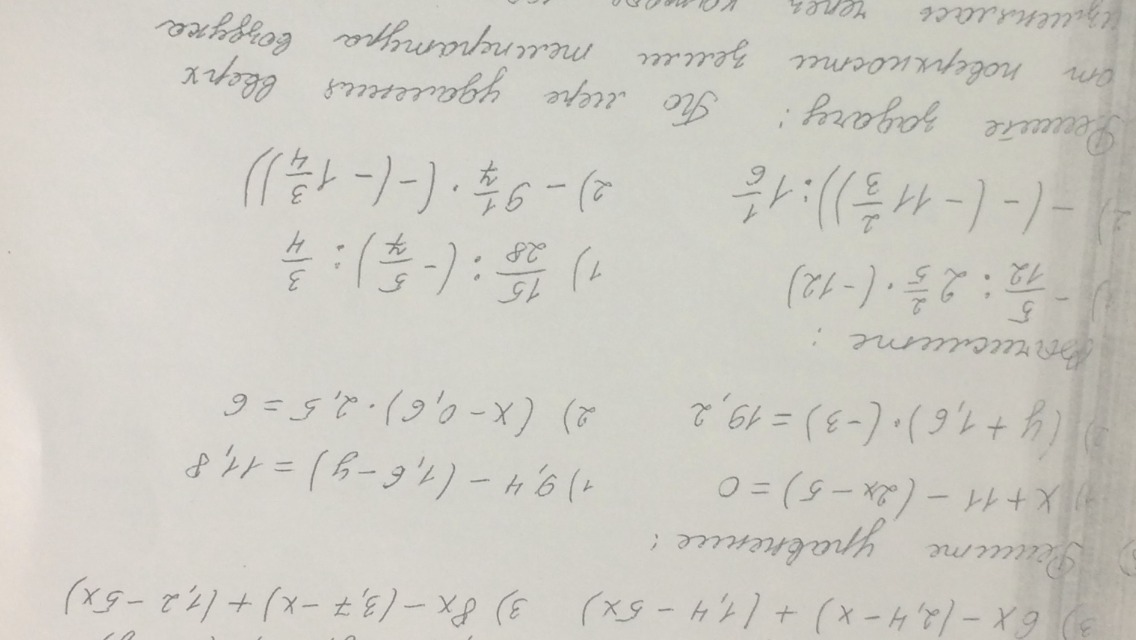 3) 6x − (2,4 − x) + (1,4 − 5x) 3) 8x − (3,7 − x) + (1,2 − 5x)
Решите уравнение:
1) x + 11 − (2x − 5) = 0 1) 9,4 − (1,6 − y) = 11,8
2) (y + 1,6) · (−3) = 19,2 2) (x − 0,6) · 2,5 = 6
Вычислите:
1) − 5/12 : 2 2/5 · (−12) 1) 15/28 : (− 5/7) : 3/4
2) − (− (− 11 2/3)) : 1 1/6 2) − 9 1/7 · (− (− 1 3/4))
Решите задачу: По мере удаления вверх
от поверхности земли температура воздуха
изменялась